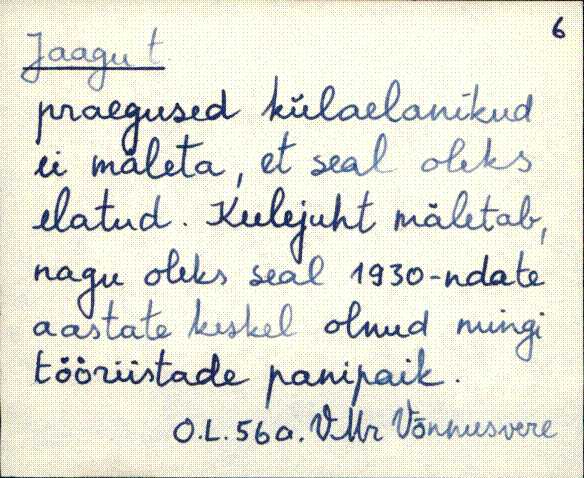 6
Jaagu t.
praegused külaelanikud
ei mäleta, et seal oleks
elatud. Keelejuht mäletab,
nagu oleks seal 1930-ndate
aastate keskel olnud mingi
tööriistade panipaik.
O.L. 56 a. VMr Võnnusvere